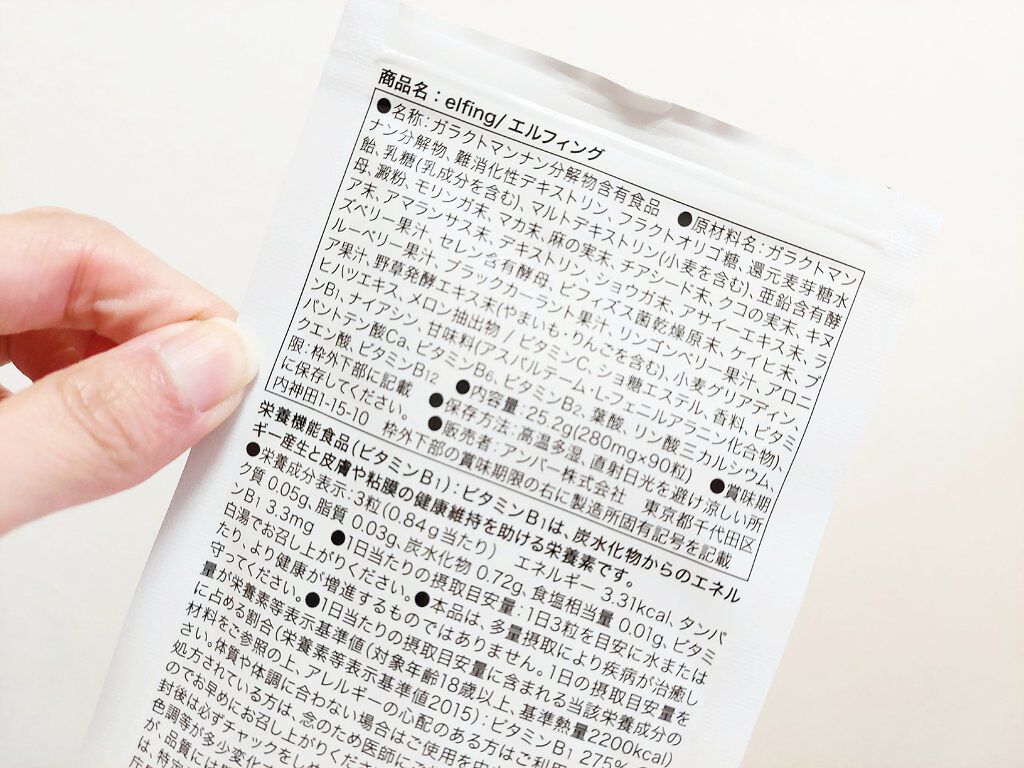 商品名：elfing/エルフィング
●名称：ガラクトマンナン分解物含有食品 ●原材料名：ガラクトマン
ナン分解物、難消化性デキストリン、フラクトオリゴ糖、還元麦芽糖水
飴、乳糖(乳成分を含む)、マルトデキストリン(小麦を含む)、亜鉛含有酵
母、澱粉、モリンガ末、マカ末、麻の実末、チアシード末、クコの実末、キヌ
ア末、アマランサス末、デキストリン、ショウガ末、アサイーエキス末、ラ
ズベリー果汁、セレン含有酵母、ビフィズス菌乾燥原末、ケイヒ末、ブ
ルーベリー果汁、ブラックカーラント果汁、リンゴンベリー果汁、アロニ
ア果汁、野草発酵エキス末(やまいも・りんごを含む)、小麦グリアディン、
ヒハツエキス、メロン抽出物／ビタミンC、ショ糖エステル、香料、ビタミ
ンB1、ナイアシン、甘味料(アスパルテーム・L-フェニルアラニン化合物)、
パントテン酸Ca、ビタミンB6、ビタミンB2、葉酸、リン酸三カルシウム、
クエン酸、ビタミンB12 ●内容量：25.2g(280mg×90粒) ●賞味期
限：枠外下部に記載 ●保存方法：高温多湿、直射日光を避け涼しい所
に保存してください。 ●販売者：アンバー株式会社 東京都千代田区
内神田1-15-10 枠外下部の賞味期限の右に製造所固有記号を記載
栄養機能食品(ビタミンB1)：ビタミンB1は、炭水化物からのエネル
ギー産生と皮膚や粘膜の健康維持を助ける栄養素です。
●栄養成分表示：3粒(0.84g当たり) エネルギー 3.31kcal、タンパ
ク質 0.05g、脂質 0.03g、炭水化物 0.72g、食塩相当量 0.01g、ビタミ
ンB1 3.3mg ●1日当たりの摂取目安量：1日3粒を目安に水または
白湯でお召し上がりください。 ●本品は、多量摂取により疾病が治癒し
たり、より健康が増進するものではありません。1日の摂取目安量を
守ってください。 ●1日当たりの摂取目安量に含まれる当該栄養成分の
量が栄養素等表示基準値(対象年齢18歳以上、基準熱量2200kcal)
に占める割合(栄養素等表示基準値2015)：ビタミンB1 275%
材料をご参照の上、アレルギーの心配のある方はご利用
さい。体質や体調に合わない場合はご使用を中
処方されている方は、念のため医師にご
のでお早めにお召し上がりくだ
封後は必ずチャックをしめ
色調等が多少変化す
が、品質には
は、特定